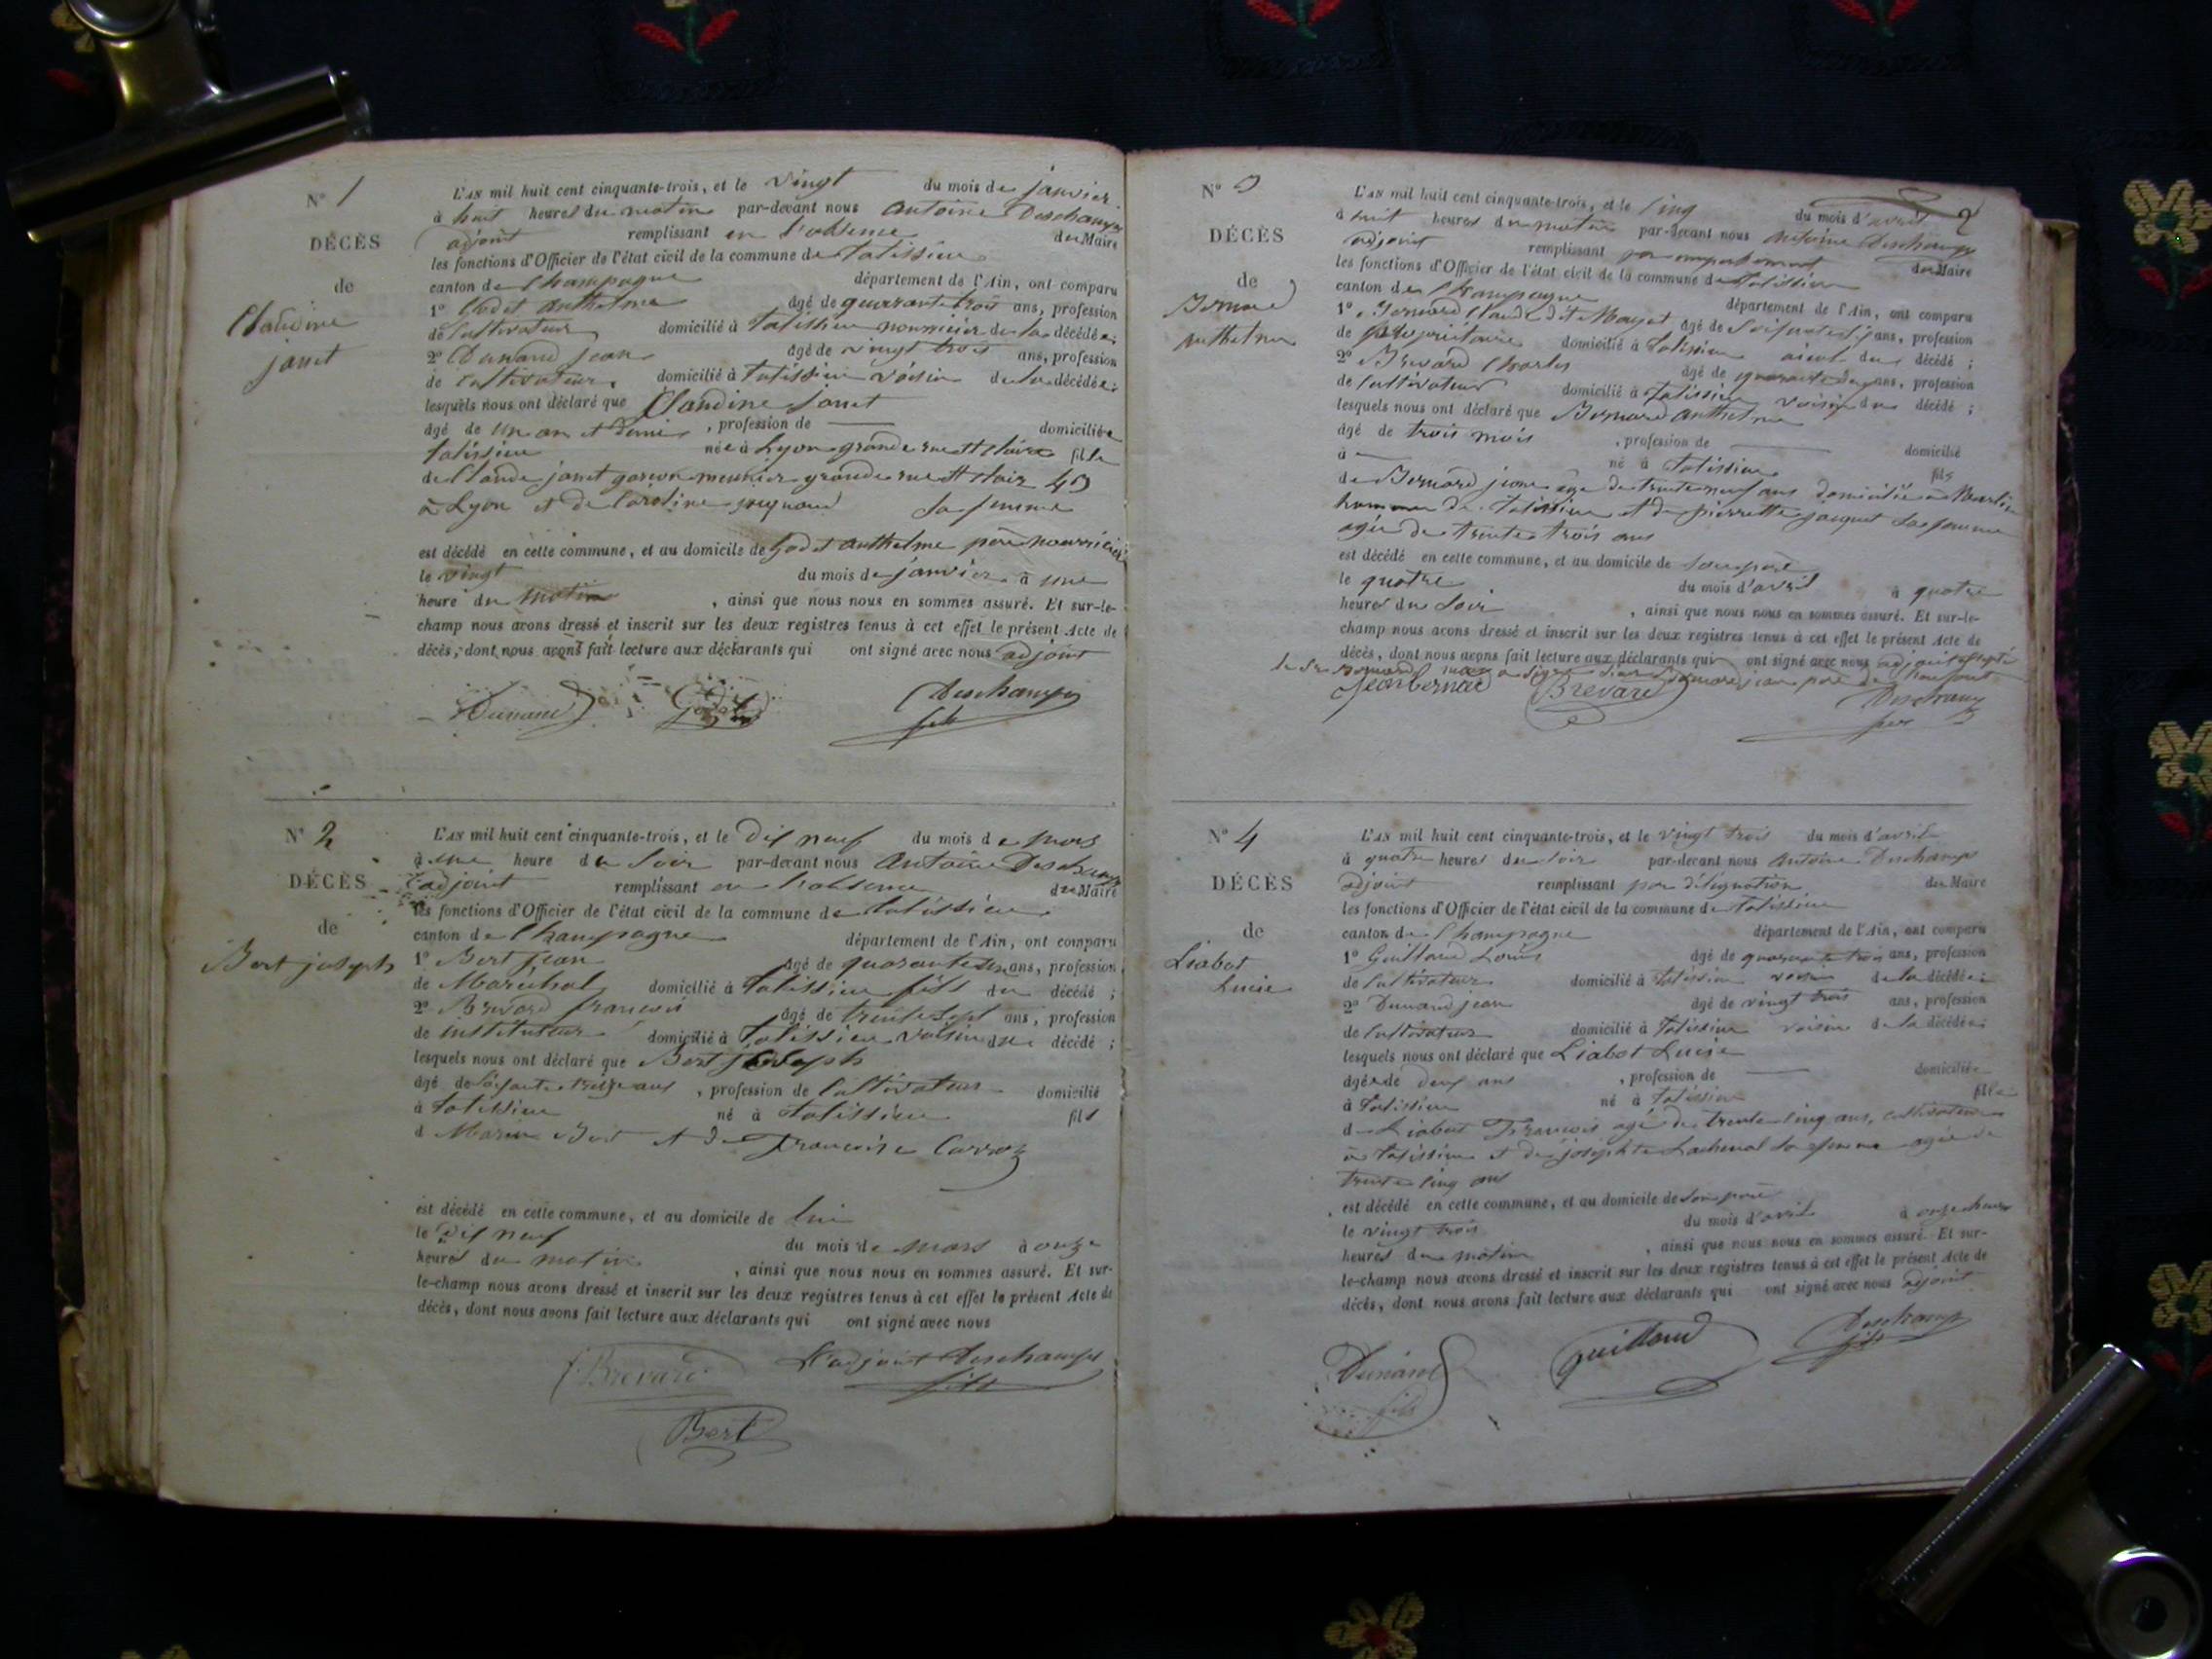 N° 1
DÉCÈS
de
Claudine
janet
L'AN mil huit cent cinquante-trois, et le vingt du mois de janvier
à huit heures du matin par-devant nous Antoine Deschamps
adjoint remplissant en l'absence du Maire
les fonctions d'Officier de l'état civil de la commune de talissieu
canton de Champagne département de l'Ain, ont comparu
1° Godet Anthelme âgé de quarante trois ans, profession
de Cultivateur domicilié à talissieu nourricier de la décédée;
2° Dunand jean âgé de vingt trois ans, profession
de cultivateur domicilié à talissieu voisin de la décédée;
lesquels nous ont déclaré que Claudine janet
âgé de un an et demi, profession de domiciliée
talissieu née à Lyon grande rue St Claire fille
de Claude janet garçon meunier grande rue St Clair
à Lyon et de Caroline sa femme
est décédé en cette commune, et au domicile de Godet Anthelme père nourricier
le vingt du mois de janvier à une
heure du matin, ainsi que nous nous en sommes assuré. Et sur-le-
champ nous avons dressé et inscrit sur les deux registres tenus à cet effet le présent Acte de
décès, dont nous avons fait lecture aux déclarants qui ont signé avec nous adjoint
Dunand Godet Deschamps
fils
N° 2
DÉCÈS
de
Bert joseph
L'AN mil huit cent cinquante-trois, et le dix neuf du mois de mars
à une heure du soir par-devant nous Antoine Deschamps
adjoint remplissant en l'absence du Maire
les fonctions d'Officier de l'état civil de la commune de talissieu
canton de Champagne département de l'Ain, ont comparu
1° Bert jean âgé de quarante ans, profession
de Maréchal domicilié à talissieu fils du décédé;
2° Brevard françois âgé de trente sept ans, profession
de instituteur domicilié à talissieu voisin du décédé;
lesquels nous ont déclaré que Bert joseph
âgé de soixante treize ans, profession de Cultivateur domicilié
à talissieu né à talissieu fils
d Marin Bert et de françoise Carroz
est décédé en cette commune, et au domicile de lui
le dix neuf du mois de mars à onze
heures du matin, ainsi que nous nous en sommes assuré. Et sur-
le-champ nous avons dressé et inscrit sur les deux registres tenus à cet effet le présent Acte de
décès, dont nous avons fait lecture aux déclarants qui ont signé avec nous
f. Brevard L'adjoint Deschamps
fils
Bert
2
N° 3
DÉCÈS
de
Bernard
Anthelme
L'AN mil huit cent cinquante-trois, et le cinq du mois d'avril
à huit heures du matin par-devant nous Antoine Deschamps
adjoint remplissant par du Maire
les fonctions d'Officier de l'état civil de la commune de talissieu
canton de Champagne département de l'Ain, ont comparu
1° Bernard Claude dit âgé de ans, profession
de propriétaire domicilié à talissieu aieul du décédé;
2° Brevard Charles âgé de ans, profession
de cultivateur domicilié à talissieu voisin du décédé;
lesquels nous ont déclaré que Bernard Anthelme
âgé de trois mois, profession de domicilié
à né à talissieu fils
de Bernard jean âgé de trente neuf ans domicilié à
hameau de talissieu et de pierrette jacquet sa femme
agée de trente trois ans
est décédé en cette commune, et au domicile de son père
le quatre du mois d'avril à quatre
heures du soir, ainsi que nous nous en sommes assuré. Et sur-le-
champ nous avons dressé et inscrit sur les deux registres tenus à cet effet le présent Acte de
décès, dont nous avons fait lecture aux déclarants qui ont signé avec nous adjoint
Jean bernard Brevard Deschamps
N° 4
DÉCÈS
de
Liabot
Lucie
L'AN mil huit cent cinquante-trois, et le vingt trois du mois d'avril
à quatre heures du soir par-devant nous Antoine Deschamps
adjoint remplissant par délégation du Maire
les fonctions d'Officier de l'état civil de la commune de talissieu
canton de Champagne département de l'Ain, ont comparu
1° Guilland Louis âgé de quarante trois ans, profession
de Cultivateur domicilié à talissieu voisin de la décédée;
2° Dunand jean âgé de vingt trois ans, profession
de Cultivateur domicilié à talissieu voisin de la décédée;
lesquels nous ont déclaré que Liabot Lucie
âgée de deux ans, profession de domiciliée
à talissieu né à talissieu fille
de Liabot François agé de trente cinq ans, cultivateur
à talissieu et de josephte Lacheval sa femme agée de
trente cinq ans
est décédé en cette commune, et au domicile de son père
le vingt trois du mois d'avril à onze heures
heures du matin, ainsi que nous nous en sommes assuré. Et sur-
le-champ nous avons dressé et inscrit sur les deux registres tenus à cet effet le présent Acte de
décès, dont nous avons fait lecture aux déclarants qui ont signé avec nous adjoint
Dunand fils guilland Deschamps
fils